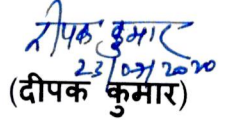 दीपक कुमार
23/07/2020
(दीपक कुमार)